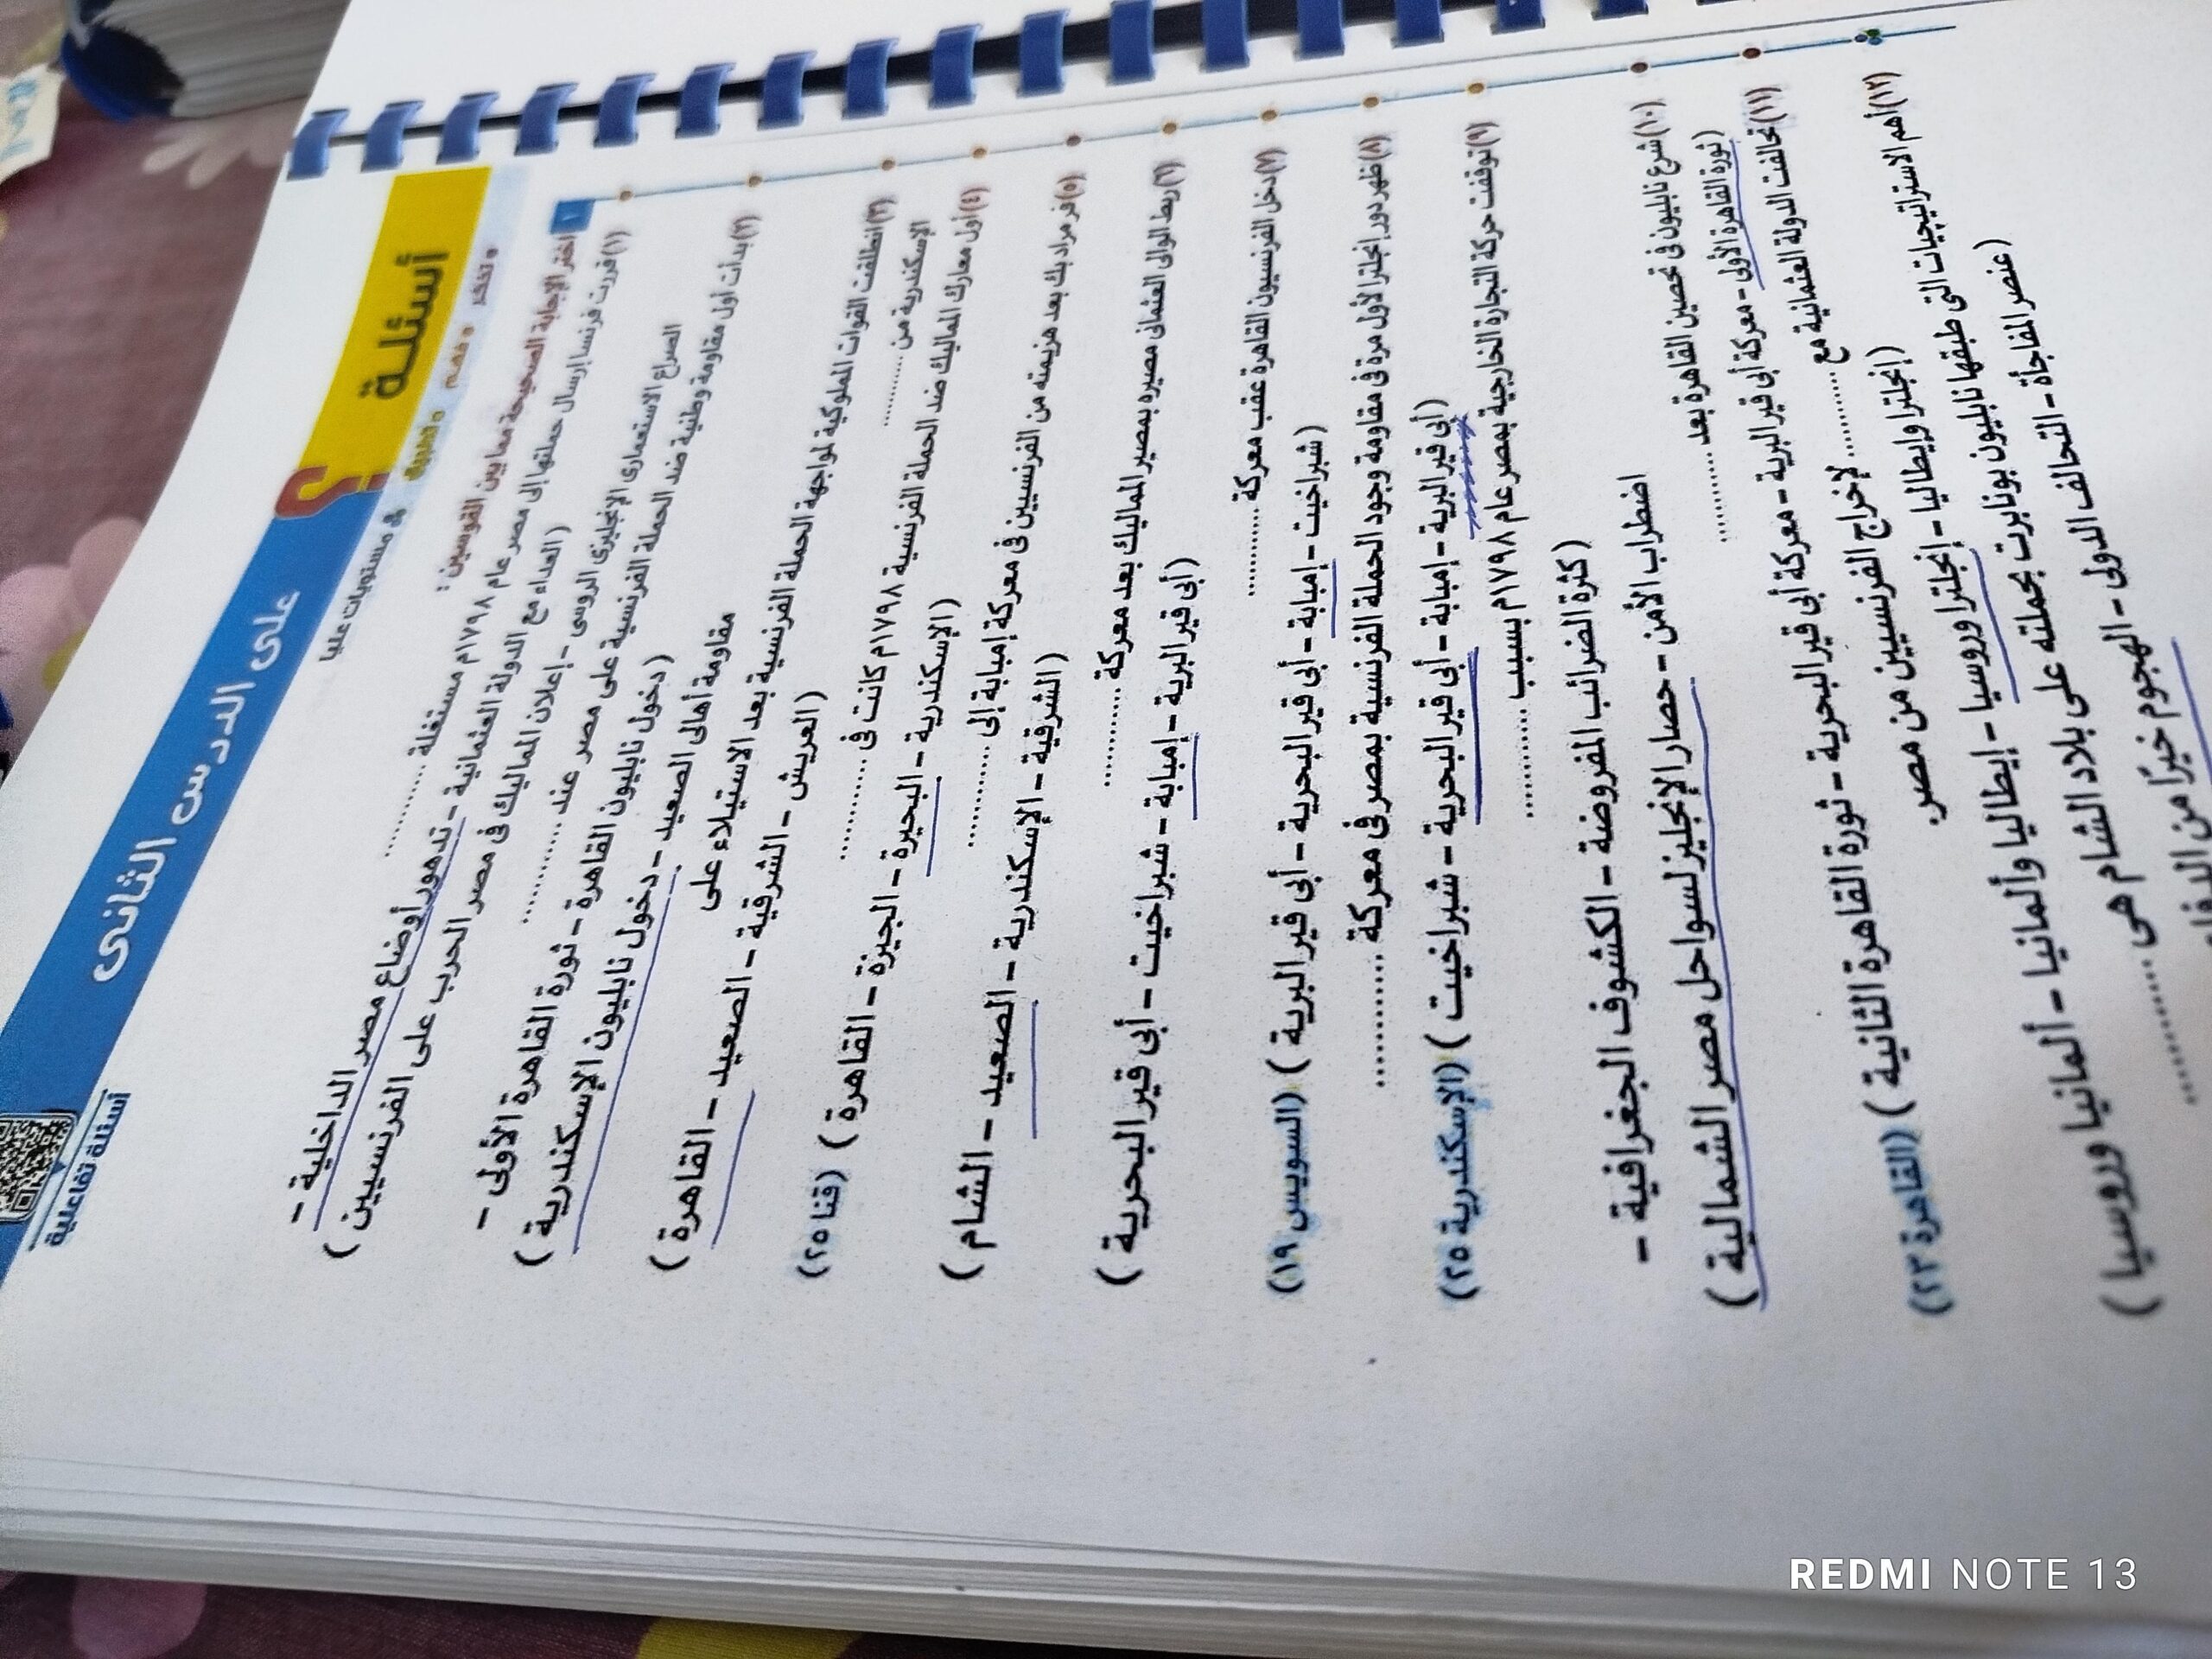 أسئلة على الدرس الثانى
أسئلة تفاعلية
• تذكر • فهم • تطبيق • مستويات عليا
١ اختر الإجابة الصحيحة مما بين القوسين :
(١) قررت فرنسا إرسال حملتها إلى مصر عام ١٧٩٨م مستغلة ...........
( العداء مع الدولة العثمانية - تدهور أوضاع مصر الداخلية -
الصراع الاستعمارى الإنجليزى الروسى - إعلان المماليك فى مصر الحرب على الفرنسيين )
(٢) بدأت أول مقاومة وطنية ضد الحملة الفرنسية على مصر عند ...........
( دخول نابليون القاهرة - ثورة القاهرة الأولى -
مقاومة أهالى الصعيد - دخول نابليون الإسكندرية )
(٣) انطلقت القوات المملوكية لمواجهة الحملة الفرنسية بعد الاستيلاء على
الإسكندرية من ...........
( العريش - الشرقية - الصعيد - القاهرة )
(٤) أول معارك المماليك ضد الحملة الفرنسية ١٧٩٨م كانت فى ...........
( الإسكندرية - البحيرة - الجيزة - القاهرة ) (قنا ٢٥)
(٥) فر مراد بك بعد هزيمته من الفرنسيين فى معركة إمبابة إلى ...........
( الشرقية - الإسكندرية - الصعيد - الشام )
(٦) ربط الوالى العثمانى مصيره بمصير المماليك بعد معركة ...........
( أبى قير البرية - إمبابة - شبراخيت - أبى قير البحرية )
(٧) دخل الفرنسيون القاهرة عقب معركة ...........
( شبراخيت - إمبابة - أبى قير البحرية - أبى قير البرية ) (السويس ١٩)
(٨) ظهر دور إنجلترا لأول مرة فى مقاومة وجود الحملة الفرنسية بمصر فى معركة ...........
( أبى قير البرية - إمبابة - أبى قير البحرية - شبراخيت ) (الإسكندرية ٢٥)
(٩) توقفت حركة التجارة الخارجية بمصر عام ١٧٩٨م بسبب ...........
( كثرة الضرائب المفروضة - الكشوف الجغرافية -
اضطراب الأمن - حصار الإنجليز لسواحل مصر الشمالية )
(١٠) شرع نابليون فى تحصين القاهرة بعد ...........
( ثورة القاهرة الأولى - معركة أبى قير البرية - معركة أبى قير البحرية - ثورة القاهرة الثانية ) (القاهرة ٢٣)
(١١) تحالفت الدولة العثمانية مع ........... لإخراج الفرنسيين من مصر.
( إنجلترا وإيطاليا - إنجلترا وروسيا - إيطاليا وألمانيا - ألمانيا وروسيا )
(١٢) أهم الاستراتيجيات التى طبقها نابليون بونابرت بحملته على بلاد الشام هى ...........
( عنصر المفاجأة - التحالف الدولى - الهجوم خيرًا من الدفاع
REDMI NOTE 13